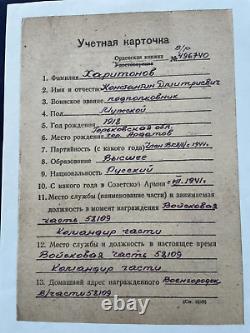 Учетная карточка
Орденская книжка В/р
Удостоверение №496740
1. Фамилия Харитонов
2. Имя и отчество Константин Дмитриевич
3. Воинское звание подполковник
4. Пол Мужской
5. Год рождения 1918
Горьковская обл.
6. Место рождения гор. Ардатов
7. Партийность (с какого года) Член ВКП(б)-1941г.
8. Образование Высшее
9. Национальность Русский
10. С какого года в Советской Армии 1941г.
11. Место службы (наименование части) и занимаемая
должность в момент награждения Войсковая
часть 53109
Командир части
12. Место службы и должность в настоящее время
Войсковая часть 53109
Командир части
13. Домашний адрес награжденного Военгородок
в/части 53109
(См. на об.)